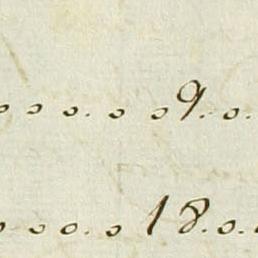 o o o. o o 9. o.
o o o. o 18. o. o